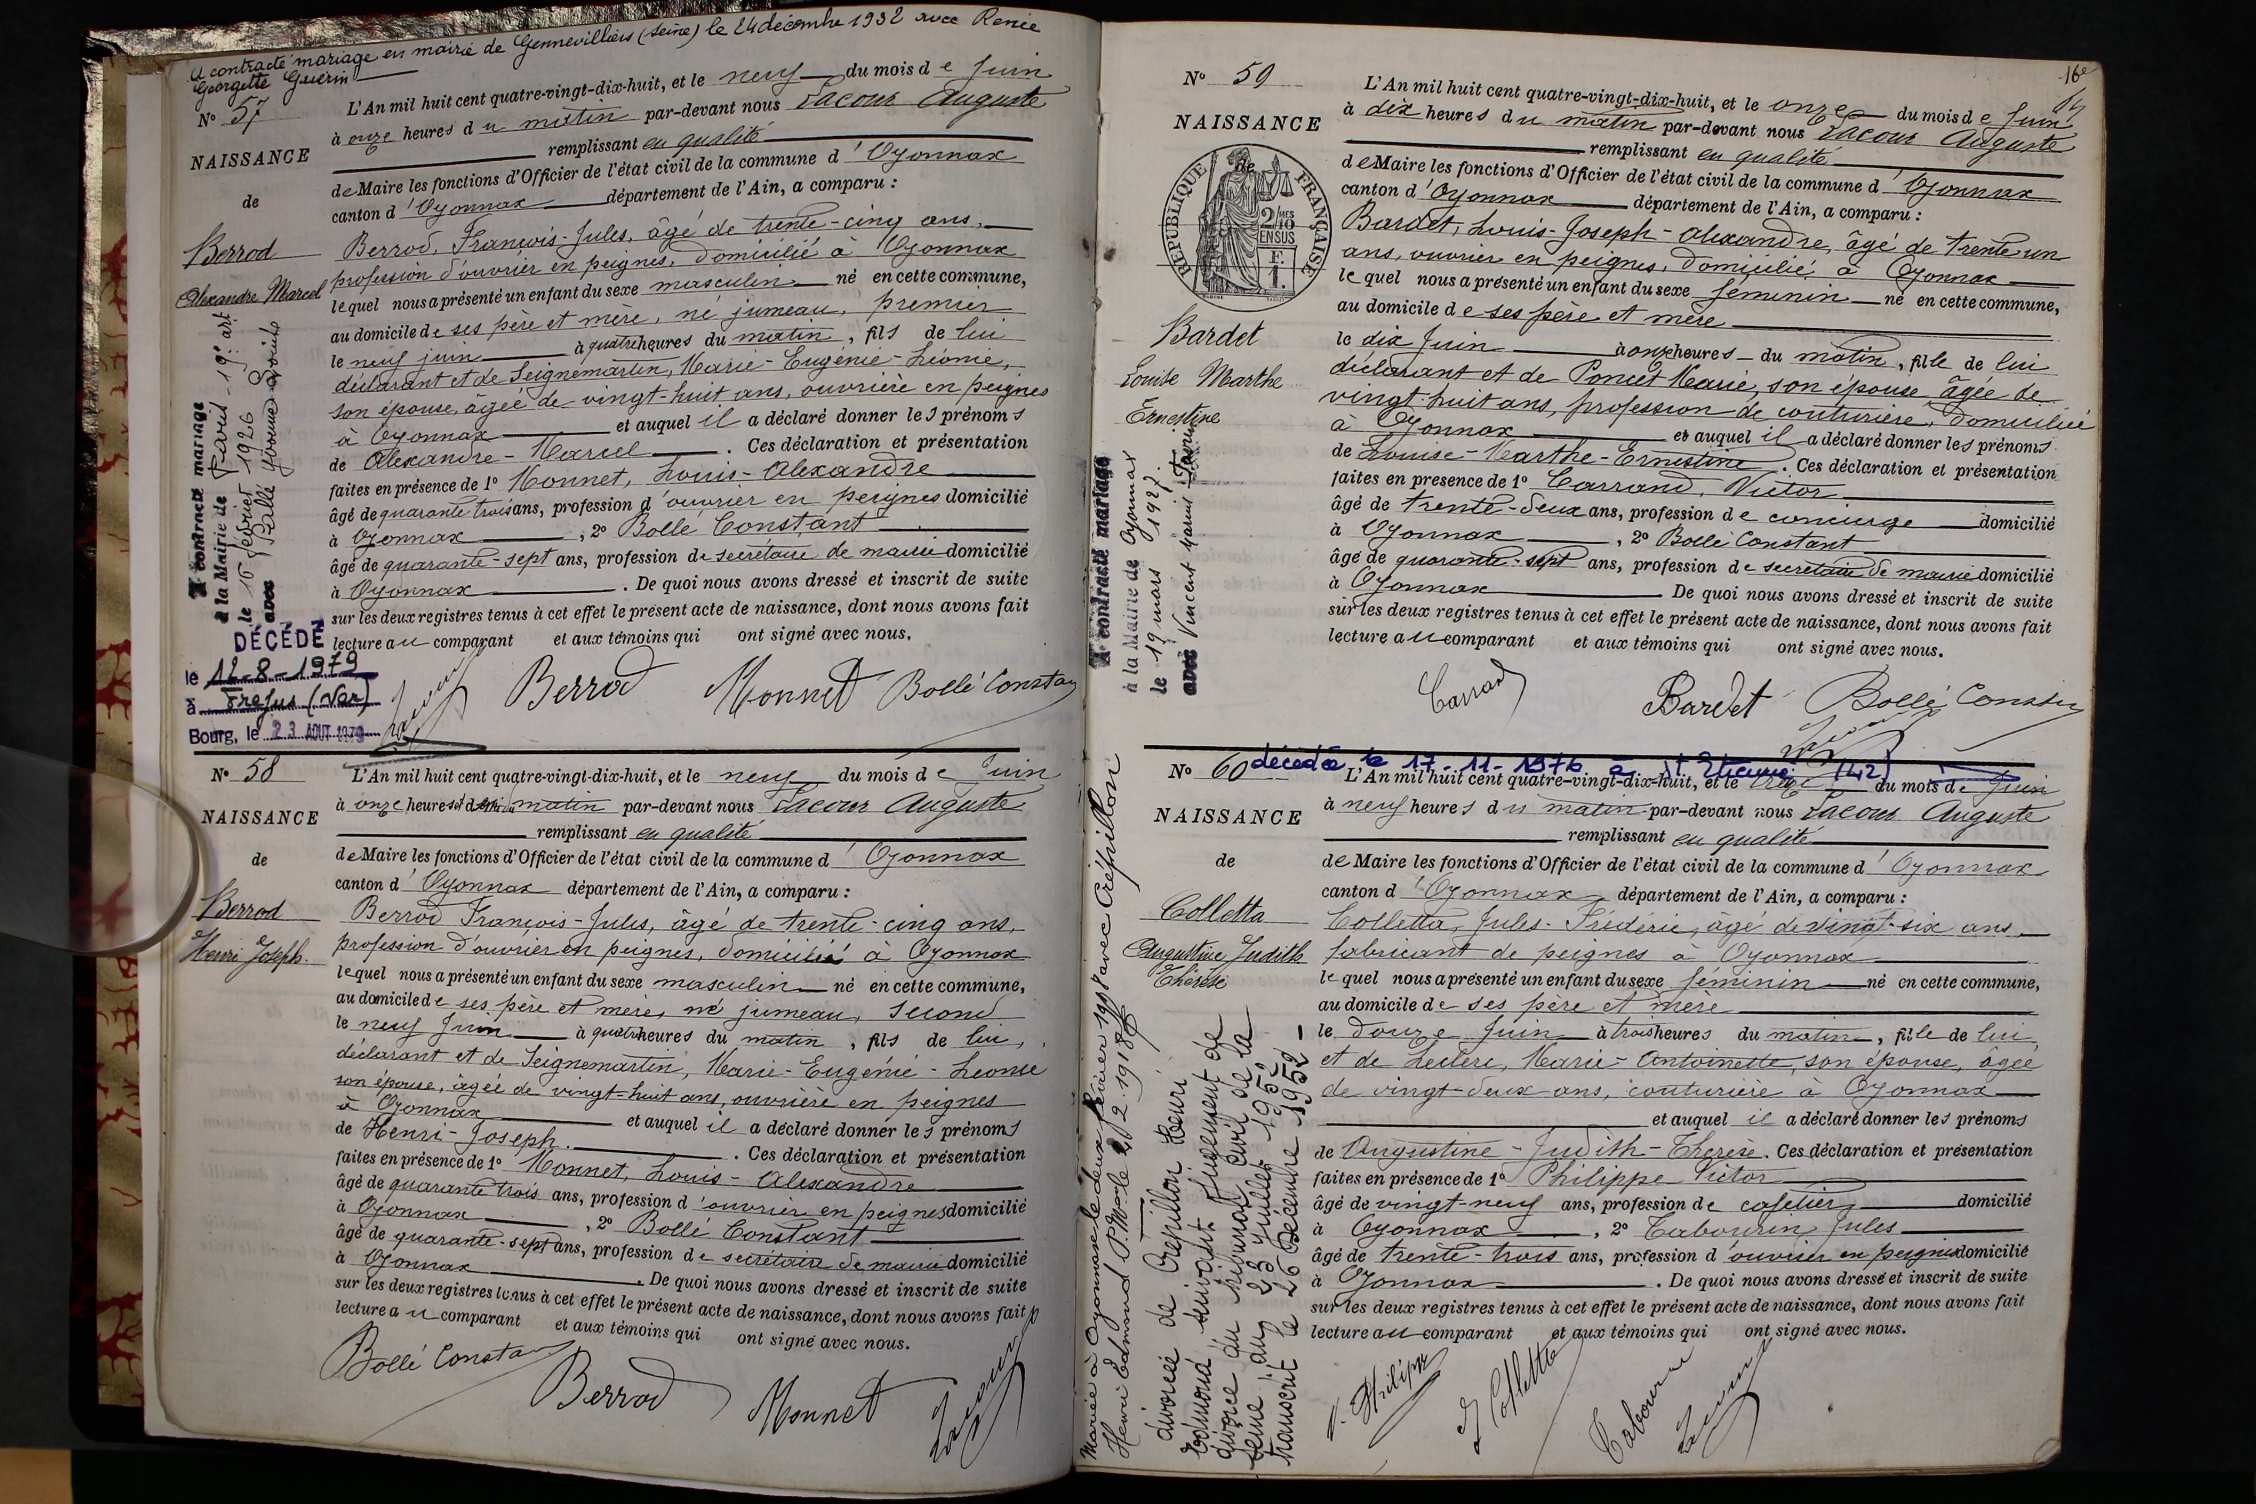 A contracté mariage en mairie de Gennevilliers (Seine) le 24 décembre 1932 avec Renée
Georgette Guérin
N° 57
NAISSANCE
de
Berrod
Alexandre Marcel
A contracté mariage
à la Mairie de Paris - 19e art
le 16 février 1926
avec Ballé Yvonne
DÉCÉDÉ
le 12-8-1979
à Frejus (Var)
Bourg, le 23 AOUT 1979
L'An mil huit cent quatre-vingt-dix-huit, et le neuf du mois de Juin
à onze heures du matin par-devant nous Lacour Auguste
remplissant en qualité
de Maire les fonctions d'Officier de l'état civil de la commune d'Oyonnax
canton d'Oyonnax département de l'Ain, a comparu :
Berrod, François-Jules, âgé de trente-cinq ans,
profession d'ouvrier en peignes, domicilié à Oyonnax
lequel nous a présenté un enfant du sexe masculin né en cette commune,
au domicile de ses père et mère, né jumeau, premier
le neuf juin à quatre heures du matin, fils de lui
déclarant et de Seignemartin, Marie-Eugénie-Léonie,
son épouse, âgée de vingt-huit ans, ouvrière en peignes
à Oyonnax et auquel il a déclaré donner les prénoms
de Alexandre-Marcel. Ces déclaration et présentation
faites en présence de 1° Monnet, Louis-Alexandre
âgé de quarante trois ans, profession d'ouvrier en peignes domicilié
à Oyonnax, 2° Bollé Constant
âgé de quarante-sept ans, profession de secrétaire de mairie domicilié
à Oyonnax. De quoi nous avons dressé et inscrit de suite
sur les deux registres tenus à cet effet le présent acte de naissance, dont nous avons fait
lecture au comparant et aux témoins qui ont signé avec nous.
Lacour Berrod Monnet Bollé Constant
N° 58
NAISSANCE
de
Berrod
Henri Joseph.
L'An mil huit cent quatre-vingt-dix-huit, et le neuf du mois de Juin
à onze heures du matin par-devant nous Lacour Auguste
remplissant en qualité
de Maire les fonctions d'Officier de l'état civil de la commune d'Oyonnax
canton d'Oyonnax département de l'Ain, a comparu :
Berrod François-Jules, âgé de trente-cinq ans,
profession d'ouvrier en peignes, domicilié à Oyonnax
lequel nous a présenté un enfant du sexe masculin né en cette commune,
au domicile de ses père et mère, né jumeau, second
le neuf Juin à quatre heures du matin, fils de lui,
déclarant et de Seignemartin, Marie-Eugénie-Léonie
son épouse, âgée de vingt-huit ans, ouvrière en peignes
à Oyonnax et auquel il a déclaré donner les prénoms
de Henri-Joseph. Ces déclaration et présentation
faites en présence de 1° Monnet, Louis-Alexandre
âgé de quarante trois ans, profession d'ouvrier en peignes domicilié
à Oyonnax, 2° Bollé Constant
âgé de quarante-sept ans, profession de secrétaire de mairie domicilié
à Oyonnax. De quoi nous avons dressé et inscrit de suite
sur les deux registres tenus à cet effet le présent acte de naissance, dont nous avons fait
lecture au comparant et aux témoins qui ont signé avec nous.
Bollé Constant Berrod Monnet Lacour
16e
N° 59
NAISSANCE
RÉPUBLIQUE FRANÇAISE
2/10MES
EN SUS
F.
1.
Bardet
Louise Marthe
Ernestine
A contracté mariage
à la Mairie de Oyonnax
le 19 mars 1927
avec Vincent Marius
L'An mil huit cent quatre-vingt-dix-huit, et le onze du mois de Juin
à dix heures du matin par-devant nous Lacour Auguste
remplissant en qualité
de Maire les fonctions d'Officier de l'état civil de la commune d'Oyonnax
canton d'Oyonnax département de l'Ain, a comparu :
Bardet, Louis-Joseph-Alexandre, âgé de trente un
ans, ouvrier en peignes, domicilié à Oyonnax
lequel nous a présenté un enfant du sexe féminin né en cette commune,
au domicile de ses père et mère
le dix Juin à onze heures du matin, fille de lui
déclarant et de Poncet Marie, son épouse âgée de
vingt-huit ans, profession de couturière, domiciliée
à Oyonnax et auquel il a déclaré donner les prénoms
de Louise-Marthe-Ernestine. Ces déclaration et présentation
faites en présence de 1° Carrand, Victor
âgé de trente-deux ans, profession de concierge domicilié
à Oyonnax, 2° Bollé Constant
âgé de quarante-sept ans, profession de secrétaire de mairie domicilié
à Oyonnax. De quoi nous avons dressé et inscrit de suite
sur les deux registres tenus à cet effet le présent acte de naissance, dont nous avons fait
lecture au comparant et aux témoins qui ont signé avec nous.
Carrand Bardet Bollé Constant
Lacour
décédée le 17-11-1976 à St Etienne (42)
N° 60
NAISSANCE
de
Colletta
Augustine Judith
Thérèse
Mariée à Oyonnax le deux février 1918 avec Crépillon
Henri Edmond
divorcée de Crépillon Henri
Edmond suivant jugement de
divorce du tribunal civil de la
Seine du 23 juillet 1952
transcrit le 26 Décembre 1952
L'An mil huit cent quatre-vingt-dix-huit, et le treize du mois de Juin
à neuf heures du matin par-devant nous Lacour Auguste
remplissant en qualité
de Maire les fonctions d'Officier de l'état civil de la commune d'Oyonnax
canton d'Oyonnax département de l'Ain, a comparu :
Colletta, Jules-Frédéric, âgé de vingt-six ans
fabricant de peignes à Oyonnax
lequel nous a présenté un enfant du sexe féminin né en cette commune,
au domicile de ses père et mère
le douze Juin à trois heures du matin, fille de lui,
et de Leclerc, Marie-Antoinette, son épouse, âgée
de vingt-deux ans, couturière à Oyonnax
et auquel il a déclaré donner les prénoms
de Augustine-Judith-Thérèse. Ces déclaration et présentation
faites en présence de 1° Philippe Victor
âgé de vingt-neuf ans, profession de cafetier domicilié
à Oyonnax, 2° Tabourin Jules
âgé de trente-trois ans, profession d'ouvrier en peignes domicilié
à Oyonnax. De quoi nous avons dressé et inscrit de suite
sur les deux registres tenus à cet effet le présent acte de naissance, dont nous avons fait
lecture au comparant et aux témoins qui ont signé avec nous.
V. Philippe J Colletta Tabourin Lacour